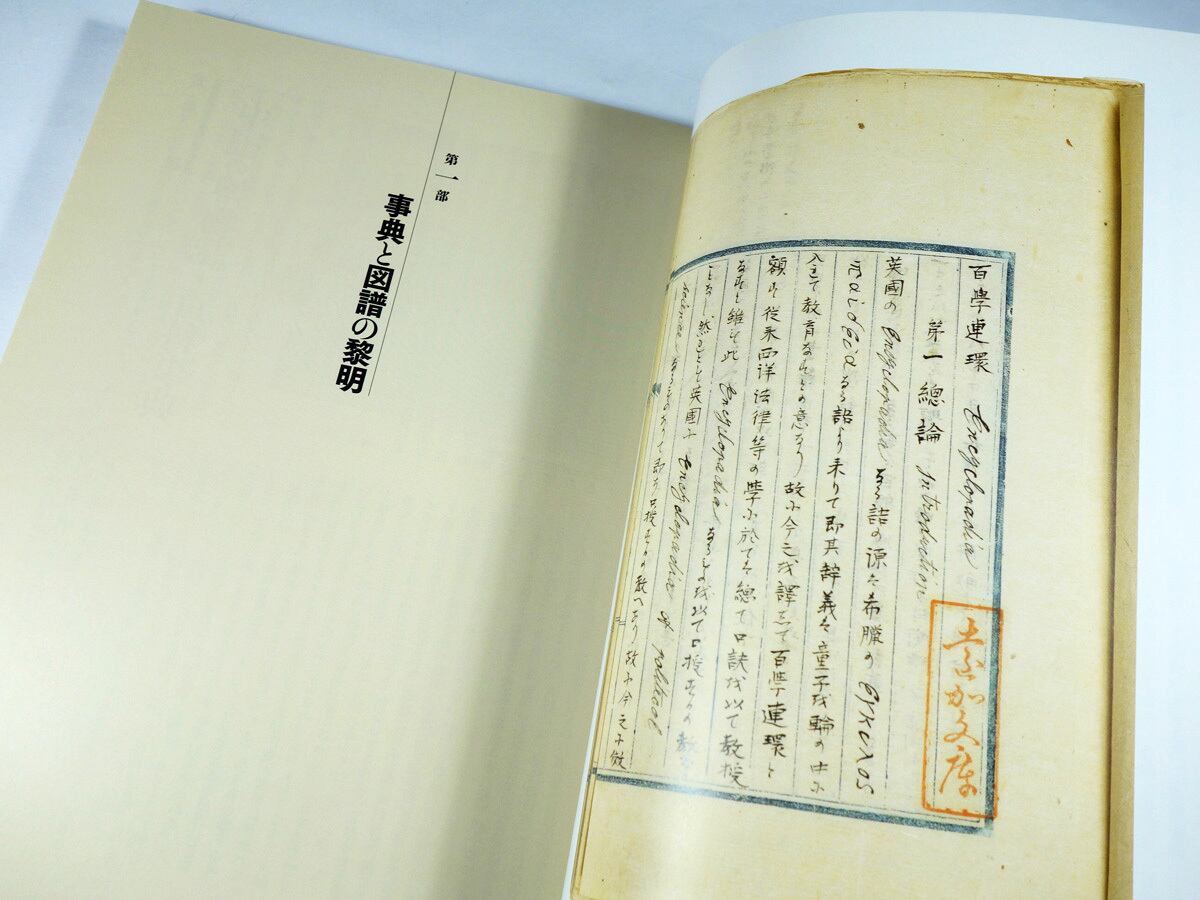 第一部
事典と図譜の黎明
百學連環 Encyclopadia
第一 總論 Introduction
英國の Encyclopadia なる語の源は希臘の
παιδεια なる語より来りて即其辞義は童子を輪の中に
入れて教育なすとの意なり故に今之を譯して百學連環と
額す従来西洋法律等の學に於ては總て口訣を以て教授
なすと雖も此 Encyclopadia なるものを以て口授するの教
ことなし然れとも英國に Encyclopadia of Political
Science なるものありて即ち口授するの教へあり故に今之に倣
加文庫